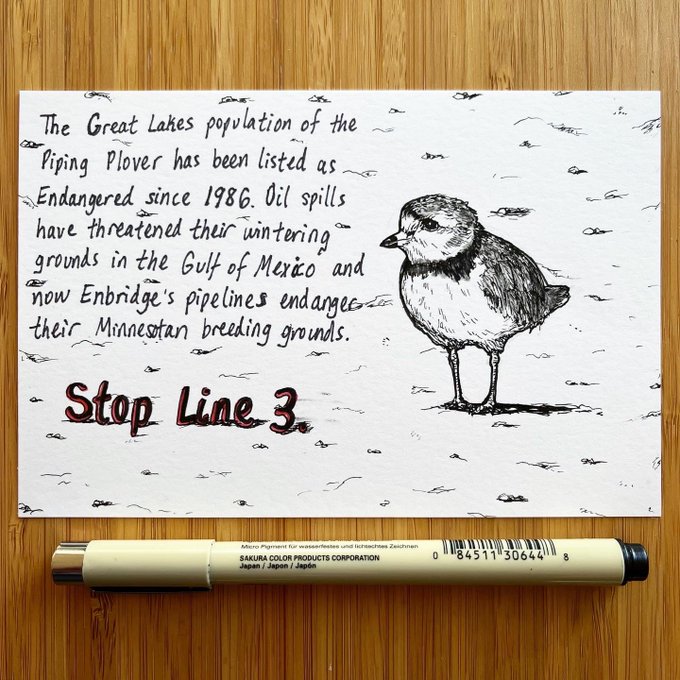 The Great Lakes population of the
Piping Plover has been listed as
Endangered since 1986. Oil spills
have threatened their wintering
grounds in the Gulf of Mexico and
now Enbridge's pipelines endanger
their Minnesotan breeding grounds.
Stop Line 3.
Micro Pigment für wasserfestes und lichtechtes Zeichnen
SAKURA COLOR PRODUCTS CORPORATION
Japan / Japon / Japón
0 84511 30644 8